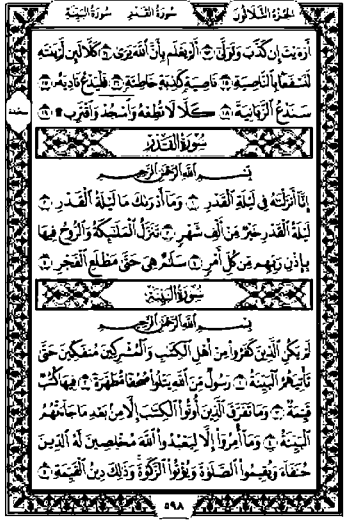 سُورَةُ البَيِّنَة سُورَةُ القَدْر الجُزْءُ الثَّلَاثُونَ
أَرَءَيْتَ إِن كَذَّبَ وَتَوَلَّىٰٓ ١٣ أَلَمْ يَعْلَم بِأَنَّ ٱللَّهَ يَرَىٰ ١٤ كَلَّا لَئِن لَّمْ يَنتَهِ
لَنَسْفَعًۢا بِٱلنَّاصِيَةِ ١٥ نَاصِيَةٍ كَٰذِبَةٍ خَاطِئَةٍ ١٦ فَلْيَدْعُ نَادِيَهُۥ ١٧
سَنَدْعُ ٱلزَّبَانِيَةَ ١٨ كَلَّا لَا تُطِعْهُ وَٱسْجُدْ وَٱقْتَرِب ۩ ١٩
سجدة
سُورَةُ القَدْرِ
بِسْمِ ٱللَّهِ ٱلرَّحْمَٰنِ ٱلرَّحِيمِ
إِنَّآ أَنزَلْنَٰهُ فِى لَيْلَةِ ٱلْقَدْرِ ١ وَمَآ أَدْرَىٰكَ مَا لَيْلَةُ ٱلْقَدْرِ ٢
لَيْلَةُ ٱلْقَدْرِ خَيْرٌ مِّنْ أَلْفِ شَهْرٍ ٣ تَنَزَّلُ ٱلْمَلَٰٓئِكَةُ وَٱلرُّوحُ فِيهَا
بِإِذْنِ رَبِّهِم مِّن كُلِّ أَمْرٍ ٤ سَلَٰمٌ هِىَ حَتَّىٰ مَطْلَعِ ٱلْفَجْرِ ٥
سُورَةُ البَيِّنَةِ
بِسْمِ ٱللَّهِ ٱلرَّحْمَٰنِ ٱلرَّحِيمِ
لَمْ يَكُنِ ٱلَّذِينَ كَفَرُوا۟ مِنْ أَهْلِ ٱلْكِتَٰبِ وَٱلْمُشْرِكِينَ مُنفَكِّينَ حَتَّىٰ
تَأْتِيَهُمُ ٱلْبَيِّنَةُ ١ رَسُولٌ مِّنَ ٱللَّهِ يَتْلُوا۟ صُحُفًا مُّطَهَّرَةً ٢ فِيهَا كُتُبٌ
قَيِّمَةٌ ٣ وَمَا تَفَرَّقَ ٱلَّذِينَ أُوتُوا۟ ٱلْكِتَٰبَ إِلَّا مِنۢ بَعْدِ مَا جَآءَتْهُمُ
ٱلْبَيِّنَةُ ٤ وَمَآ أُمِرُوٓا۟ إِلَّا لِيَعْبُدُوا۟ ٱللَّهَ مُخْلِصِينَ لَهُ ٱلدِّينَ
حُنَفَآءَ وَيُقِيمُوا۟ ٱلصَّلَوٰةَ وَيُؤْتُوا۟ ٱلزَّكَوٰةَ وَذَٰلِكَ دِينُ ٱلْقَيِّمَةِ ٥
٥٩٨